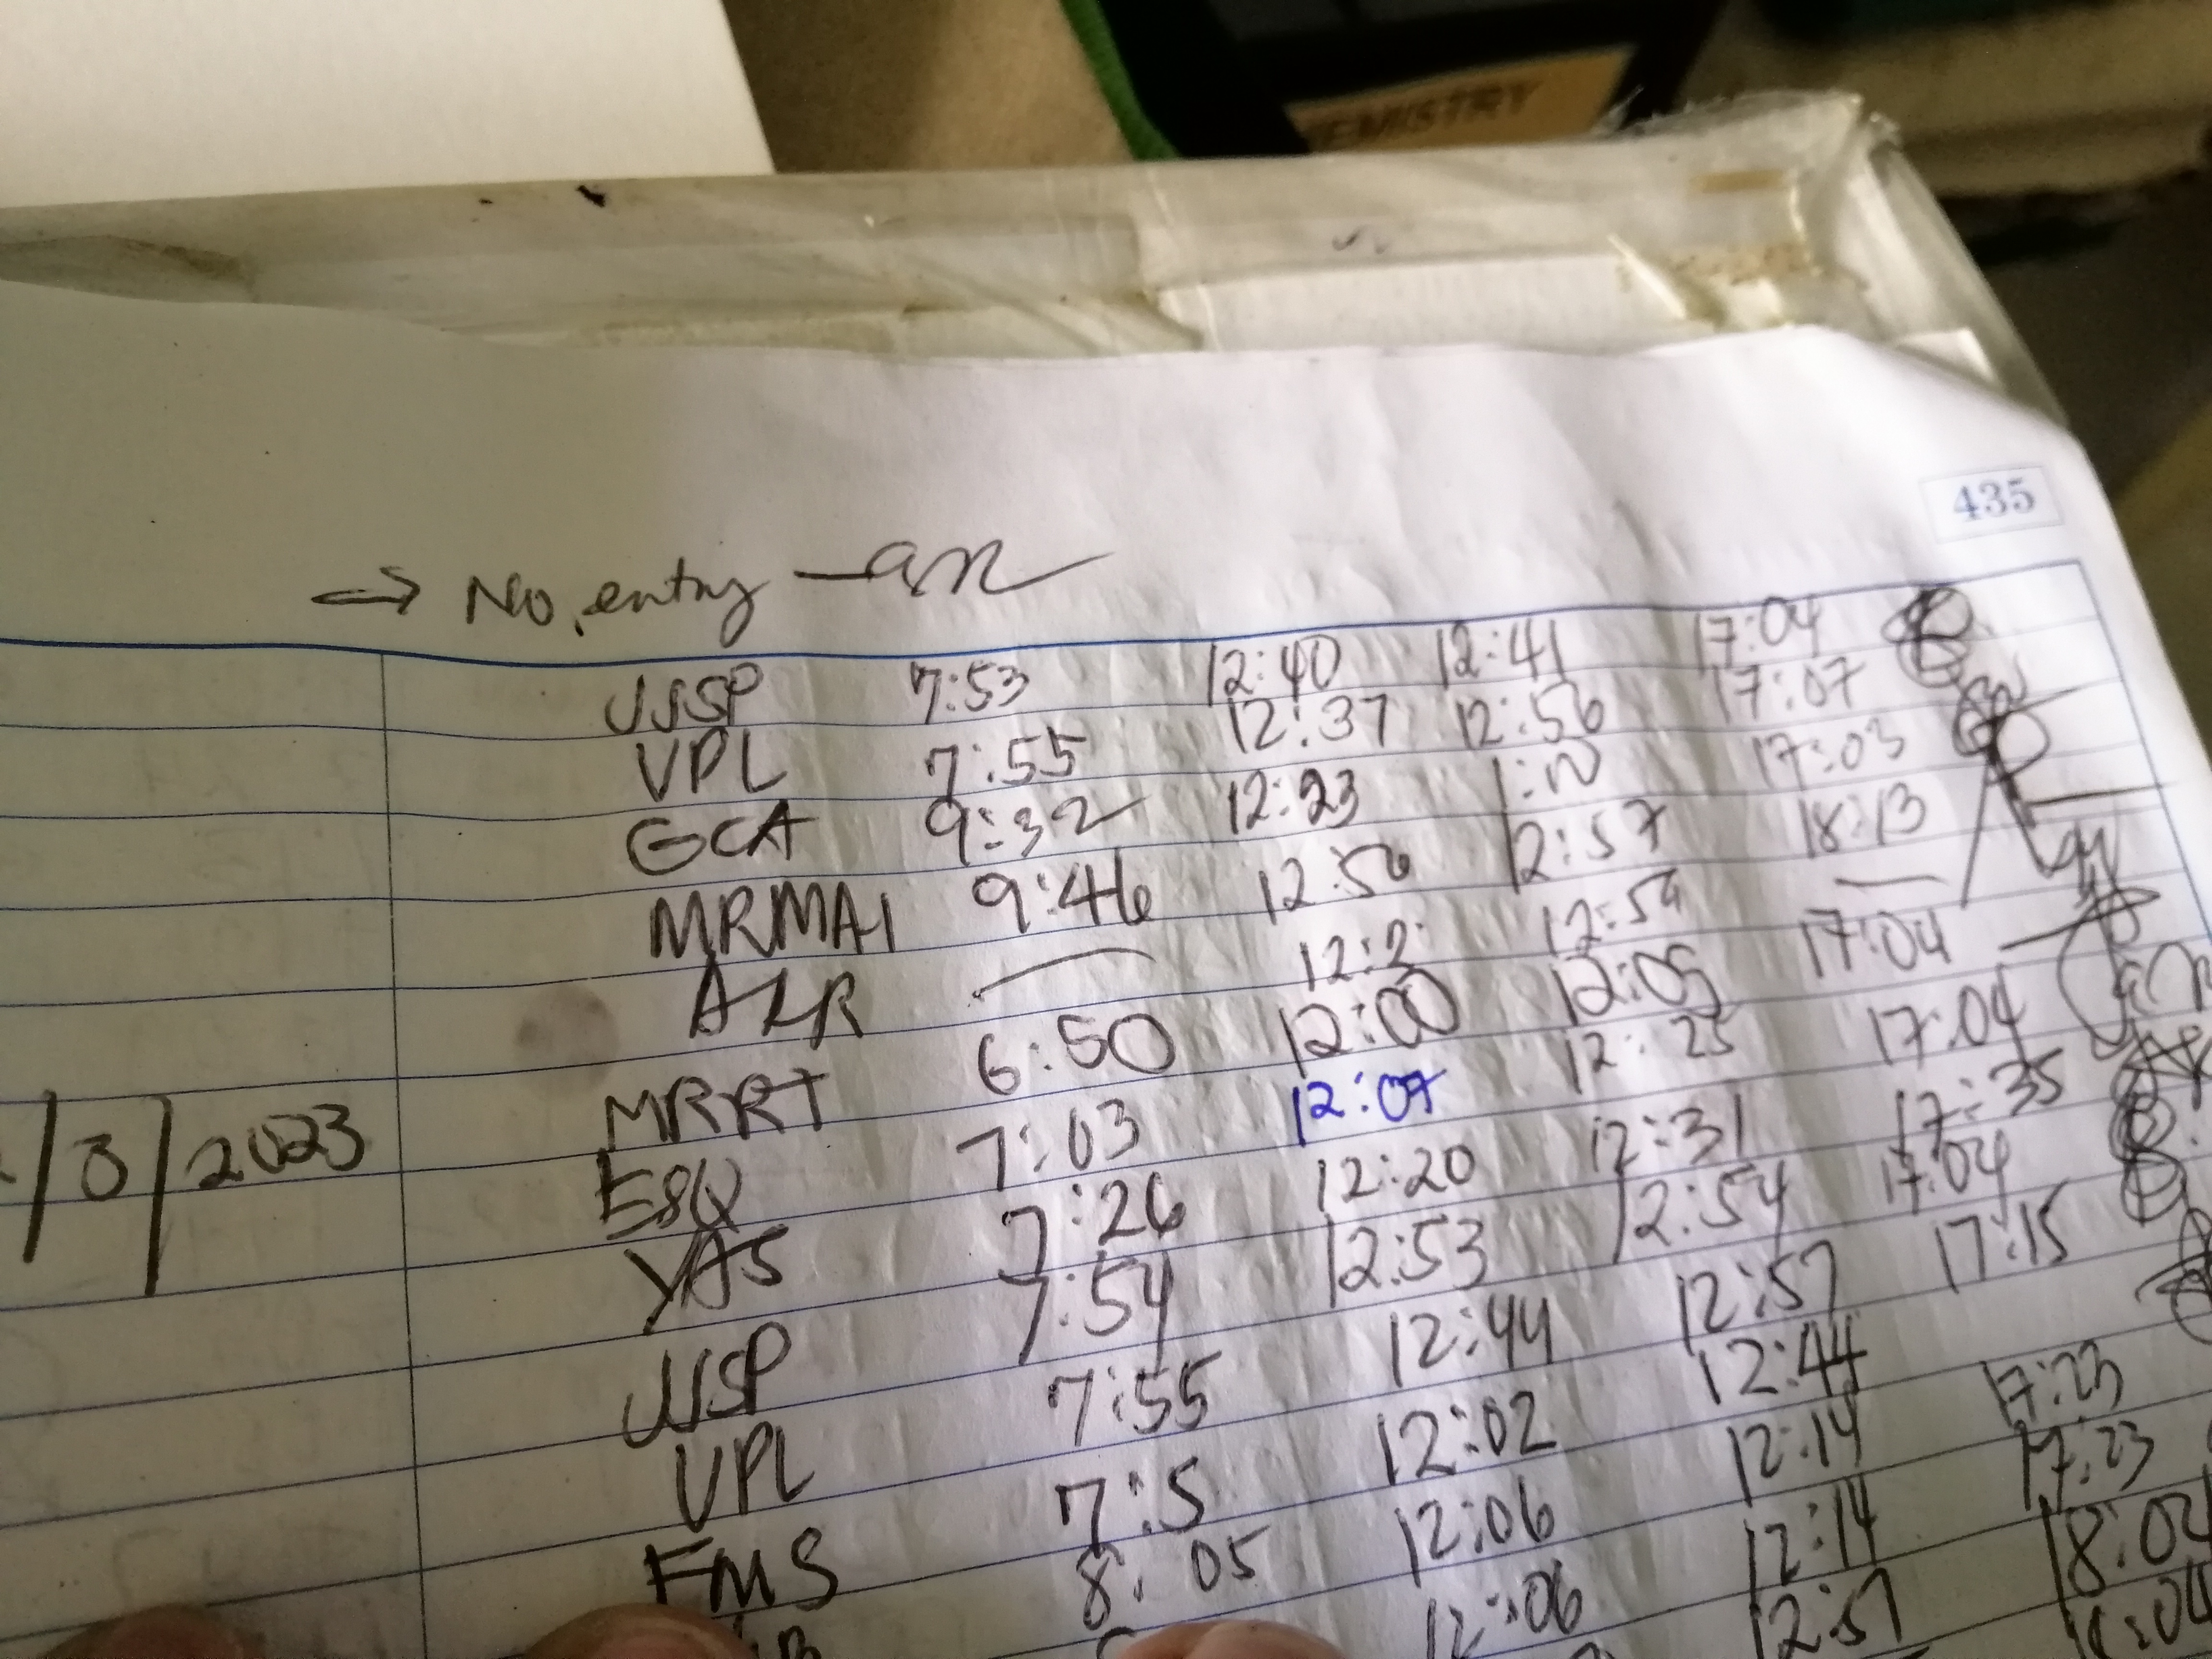 EMISTRY
435
→ No entry
JJSP 7:53 12:40 12:41 17:04
VPL 7:55 12:37 12:56 17:07
GCA 9:32 12:23 1:10 17:03
MRMAI 9:46 12:50 12:57 18:13
AZR — 12:2 12:59 —
MRRT 6:50 12:00 12:05 17:04
/3/2023 ESQ 7:03 12:07 12:25 17:04
YAS 7:26 12:20 12:31 17:35
JJSP 7:54 12:53 12:54 17:04
VPL 7:55 12:44 12:57 17:15
FMS 7:5 12:02 12:44
8:05 12:06 12:14 17:23
12:06 12:14 17:23
12:57 18:02